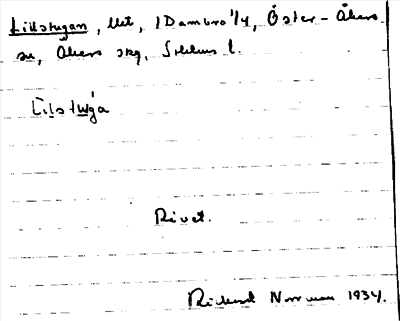 Lillstugan, lht, 1 Dambro 1/4, Öster-Åkers
sn, Åkers skg, Sthlms l.
Lilstuga
Rivet.
Rickard Norrman 1934.